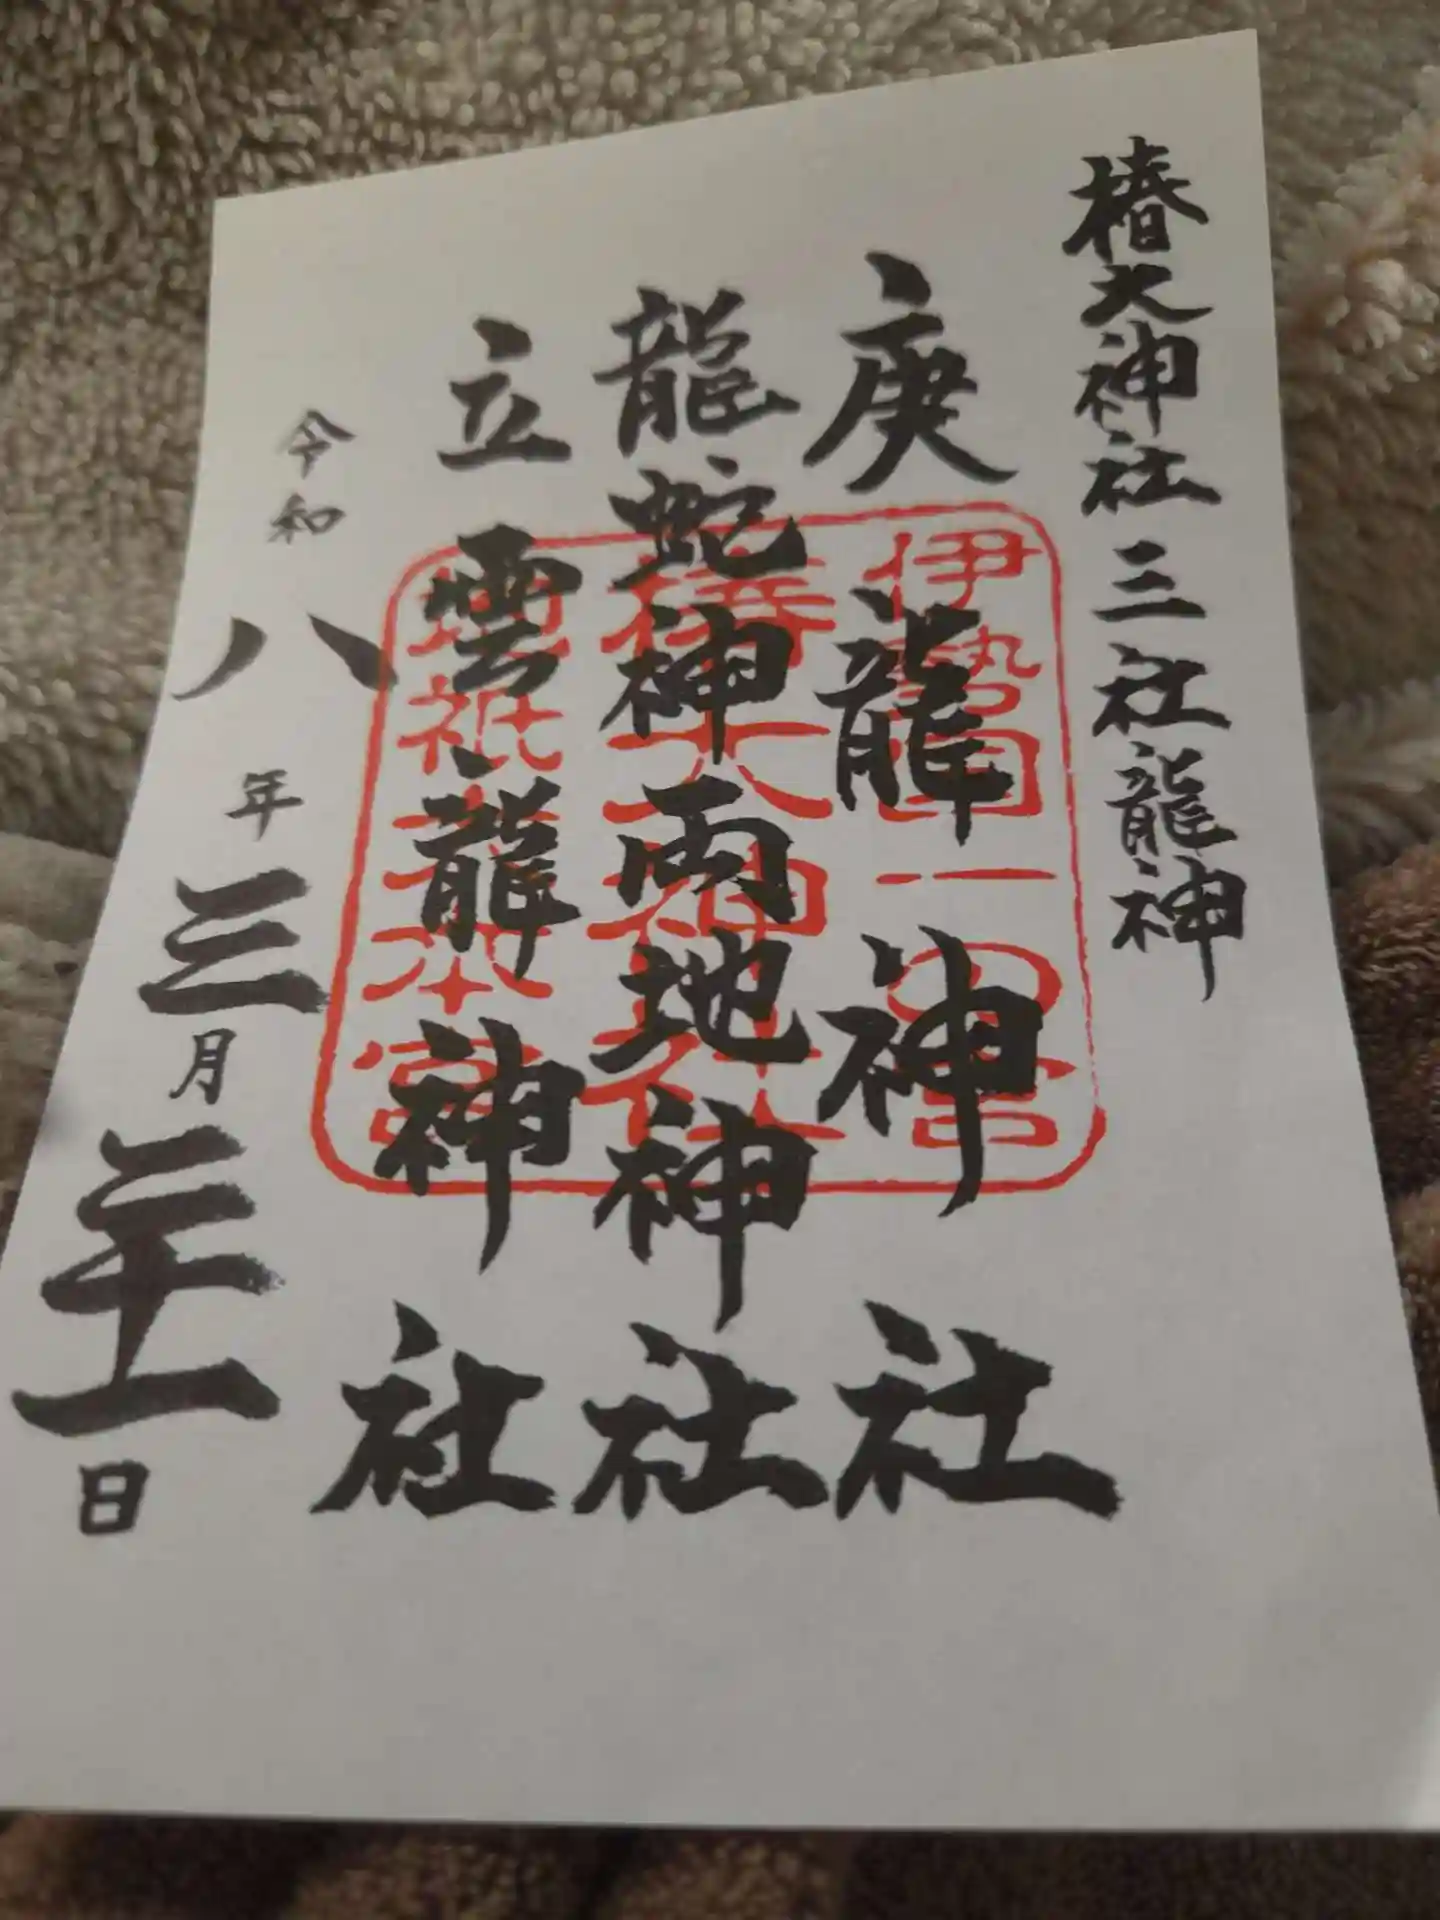 椿大神社 三社龍神
庚龍神社
龍蛇神両地神社
立雲龍神社
令和八年三月二十一日
伊勢国一の宮
椿大神社
地祇大本宮